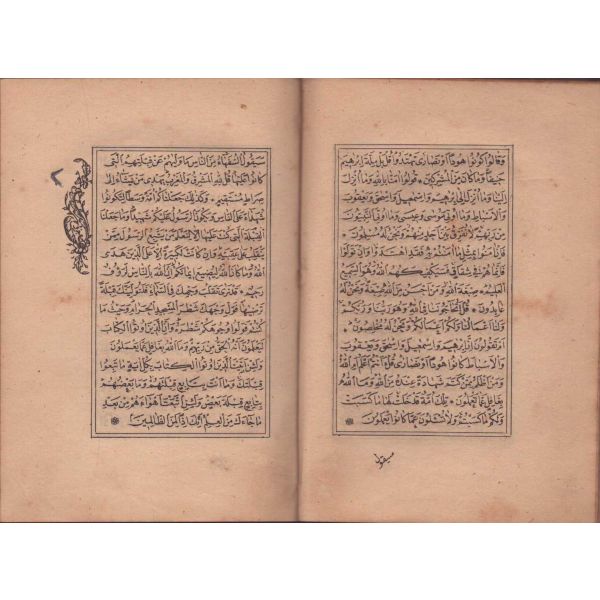 وَقَالُوا كُونُوا هُودًا اَوْ نَصَارٰى تَهْتَدُوا قُلْ بَلْ مِلَّةَ اِبْرٰهِيمَ
حَنِيفًا وَمَا كَانَ مِنَ الْمُشْرِكِينَ ۞ قُولُوا اٰمَنَّا بِاللّٰهِ وَمَا اُنْزِلَ
اِلَيْنَا وَمَا اُنْزِلَ اِلٰى اِبْرٰهِيمَ وَاِسْمٰعِيلَ وَاِسْحٰقَ وَيَعْقُوبَ
وَالْاَسْبَاطِ وَمَا اُوتِيَ مُوسٰى وَعِيسٰى وَمَا اُوتِيَ النَّبِيُّونَ
مِنْ رَبِّهِمْ لَا نُفَرِّقُ بَيْنَ اَحَدٍ مِنْهُمْ وَنَحْنُ لَهُ مُسْلِمُونَ ۞
فَاِنْ اٰمَنُوا بِمِثْلِ مَا اٰمَنْتُمْ بِهِ فَقَدِ اهْتَدَوْا وَاِنْ تَوَلَّوْا
فَاِنَّمَا هُمْ فِي شِقَاقٍ فَسَيَكْفِيكَهُمُ اللّٰهُ وَهُوَ السَّمِيعُ
الْعَلِيمُ ۞ صِبْغَةَ اللّٰهِ وَمَنْ اَحْسَنُ مِنَ اللّٰهِ صِبْغَةً وَنَحْنُ لَهُ
عَابِدُونَ ۞ قُلْ اَتُحَاجُّونَنَا فِي اللّٰهِ وَهُوَ رَبُّنَا وَرَبُّكُمْ
وَلَنَا اَعْمَالُنَا وَلَكُمْ اَعْمَالُكُمْ وَنَحْنُ لَهُ مُخْلِصُونَ ۞
اَمْ تَقُولُونَ اِنَّ اِبْرٰهِيمَ وَاِسْمٰعِيلَ وَاِسْحٰقَ وَيَعْقُوبَ
وَالْاَسْبَاطَ كَانُوا هُودًا اَوْ نَصَارٰى قُلْ ءَاَنْتُمْ اَعْلَمُ اَمِ اللّٰهُ
وَمَنْ اَظْلَمُ مِمَّنْ كَتَمَ شَهَادَةً عِنْدَهُ مِنَ اللّٰهِ وَمَا اللّٰهُ
بِغَافِلٍ عَمَّا تَعْمَلُونَ ۞ تِلْكَ اُمَّةٌ قَدْ خَلَتْ لَهَا مَا كَسَبَتْ
وَلَكُمْ مَا كَسَبْتُمْ وَلَا تُسْئَلُونَ عَمَّا كَانُوا يَعْمَلُونَ ۞
سيقول
سَيَقُولُ السُّفَهَاءُ مِنَ النَّاسِ مَا وَلّٰيهُمْ عَنْ قِبْلَتِهِمُ الَّتِي
كَانُوا عَلَيْهَا قُلْ لِلّٰهِ الْمَشْرِقُ وَالْمَغْرِبُ يَهْدِي مَنْ يَشَاءُ اِلٰى
صِرَاطٍ مُسْتَقِيمٍ ۞ وَكَذٰلِكَ جَعَلْنَاكُمْ اُمَّةً وَسَطًا لِتَكُونُوا
شُهَدَاءَ عَلَى النَّاسِ وَيَكُونَ الرَّسُولُ عَلَيْكُمْ شَهِيدًا وَمَا جَعَلْنَا
الْقِبْلَةَ الَّتِي كُنْتَ عَلَيْهَا اِلَّا لِنَعْلَمَ مَنْ يَتَّبِعُ الرَّسُولَ مِمَّنْ
يَنْقَلِبُ عَلٰى عَقِبَيْهِ وَاِنْ كَانَتْ لَكَبِيرَةً اِلَّا عَلَى الَّذِينَ هَدَى
اللّٰهُ وَمَا كَانَ اللّٰهُ لِيُضِيعَ اِيمَانَكُمْ اِنَّ اللّٰهَ بِالنَّاسِ لَرَؤُفٌ
رَحِيمٌ ۞ قَدْ نَرٰى تَقَلُّبَ وَجْهِكَ فِي السَّمَاءِ فَلَنُوَلِّيَنَّكَ قِبْلَةً
تَرْضٰيهَا فَوَلِّ وَجْهَكَ شَطْرَ الْمَسْجِدِ الْحَرَامِ وَحَيْثُ مَا
كُنْتُمْ فَوَلُّوا وُجُوهَكُمْ شَطْرَهُ وَاِنَّ الَّذِينَ اُوتُوا الْكِتَابَ
لَيَعْلَمُونَ اَنَّهُ الْحَقُّ مِنْ رَبِّهِمْ وَمَا اللّٰهُ بِغَافِلٍ عَمَّا يَعْمَلُونَ
وَلَئِنْ اَتَيْتَ الَّذِينَ اُوتُوا الْكِتَابَ بِكُلِّ اٰيَةٍ مَا تَبِعُوا
قِبْلَتَكَ وَمَا اَنْتَ بِتَابِعٍ قِبْلَتَهُمْ وَمَا بَعْضُهُمْ
بِتَابِعٍ قِبْلَةَ بَعْضٍ وَلَئِنِ اتَّبَعْتَ اَهْوَاءَهُمْ مِنْ بَعْدِ
مَا جَاءَكَ مِنَ الْعِلْمِ اِنَّكَ اِذًا لَمِنَ الظَّالِمِينَ ۞